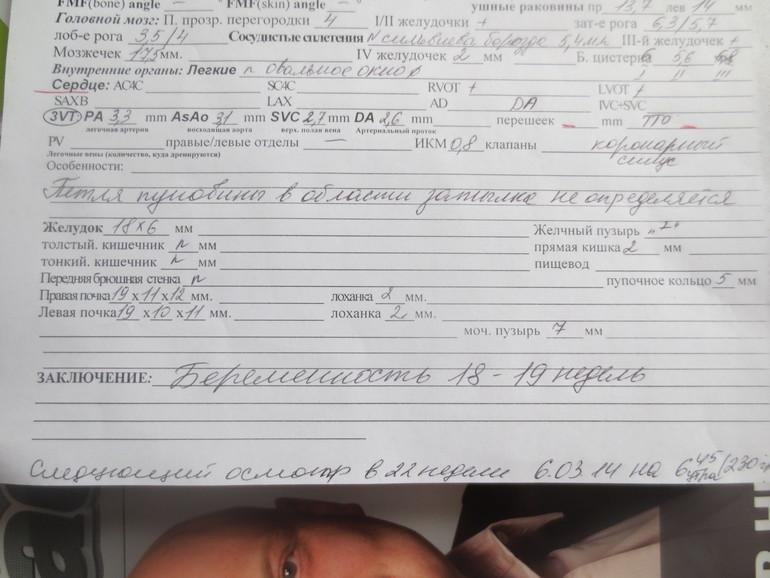 FMF(bone) angle — ° FMF(skin) angle — ° ушные раковины пр 13,7 лев 14 мм
Головной мозг: П. прозр. перегородки 4 I/II желудочки + зат-е рога 6,3/5,7
лоб-е рога 3,5/4 Сосудистые сплетения N сильвиева борозда 5,4мм III-й желудочек +
Мозжечек 17,5 мм. IV желудочек 2 мм Б. цистерна 5,6
I II III
Внутренние органы: Легкие n овальное окно
Сердце: AC4C SC4C RVOT + LVOT +
SAXB LAX AD DA IVC+SVC
3VT: PA 3,3 mm AsAo 3,1 mm SVC 2,7 mm DA 2,6 mm перешеек — mm ТТО —
легочная артерия восходящая аорта верх. полая вена Артериальный проток
PV правые/левые отделы — ИКМ 0,8 клапаны коронарный синус
Легочные вены (количество, куда дренируются)
Особенности:
Петля пуповины в области затылка не определяется
Желудок 18x6 мм Желчный пузырь "+"
толстый. кишечник n мм прямая кишка 2 мм
тонкий. кишечник n мм пищевод
Передняя брюшная стенка n пупочное кольцо 5 мм
Правая почка 19 x 11 x 12 мм. лоханка 2 мм.
Левая почка 19 x 10 x 11 мм. лоханка 2 мм.
моч. пузырь 7 мм
ЗАКЛЮЧЕНИЕ: Беременность 18 - 19 недель
Следующий осмотр в 22 недели 6.03.14 на 6 45 утра /230